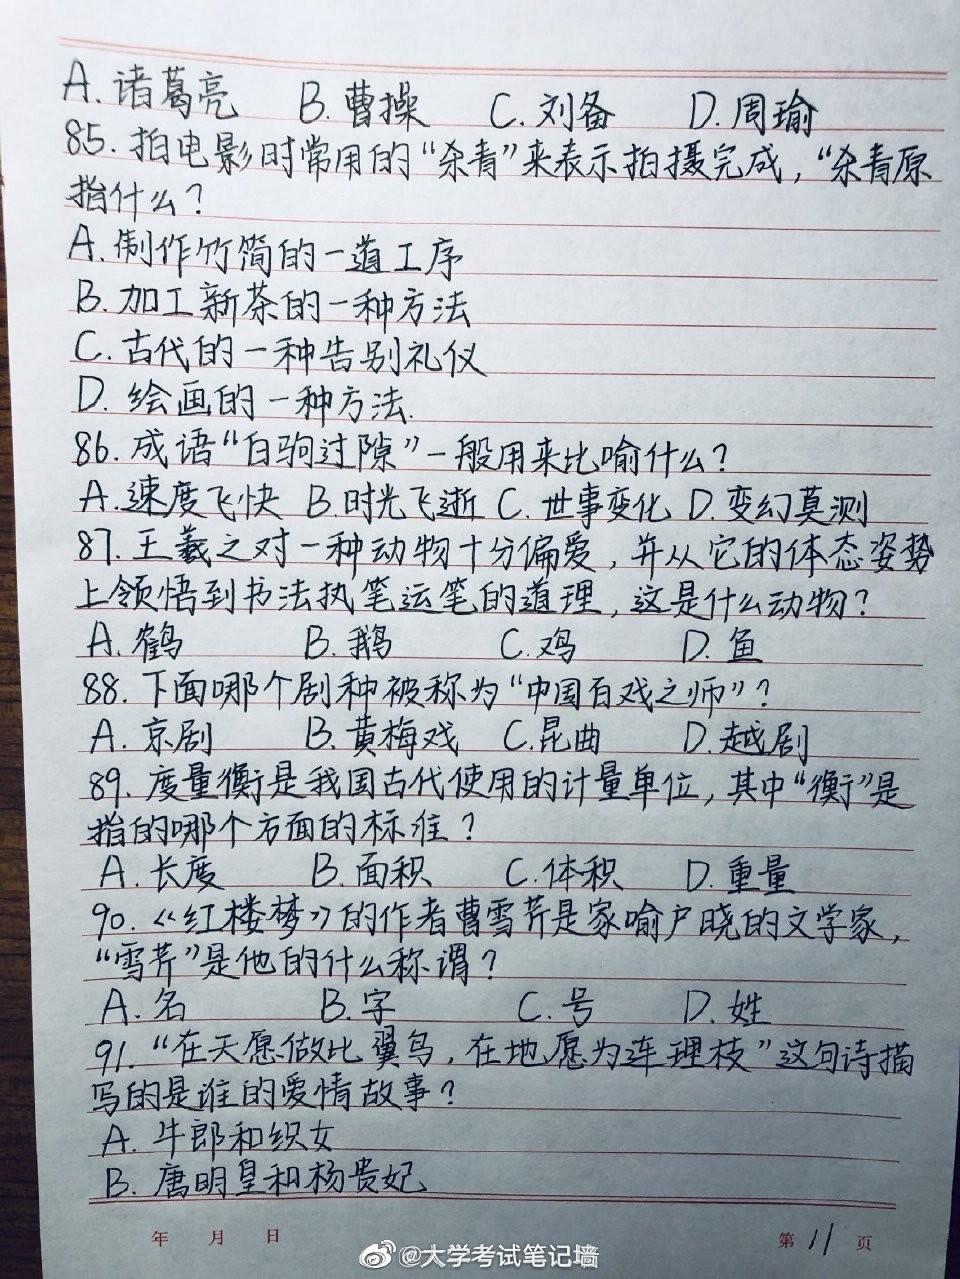 A.诸葛亮 B.曹操 C.刘备 D.周瑜
85.拍电影时常用的“杀青”来表示拍摄完成，“杀青原
指什么？
A.制作竹简的一道工序
B.加工新茶的一种方法
C.古代的一种告别礼仪
D.绘画的一种方法.
86.成语“白驹过隙”一般用来比喻什么？
A.速度飞快 B.时光飞逝 C.世事变化 D.变幻莫测
87.王羲之对一种动物十分偏爱，并从它的体态姿势
上领悟到书法执笔运笔的道理，这是什么动物？
A.鹤 B.鹅 C.鸡 D.鱼
88.下面哪个剧种被称为“中国百戏之师”？
A.京剧 B.黄梅戏 C.昆曲 D.越剧
89.度量衡是我国古代使用的计量单位，其中“衡”是
指的哪个方面的标准？
A.长度 B.面积 C.体积 D.重量
90.《红楼梦》的作者曹雪芹是家喻户晓的文学家，
“雪芹”是他的什么称谓？
A.名 B.字 C.号 D.姓
91.“在天愿做比翼鸟，在地愿为连理枝”这句诗描
写的是谁的爱情故事？
A.牛郎和织女
B.唐明皇和杨贵妃
年 月 日 第 11 页
@大学考试笔记墙